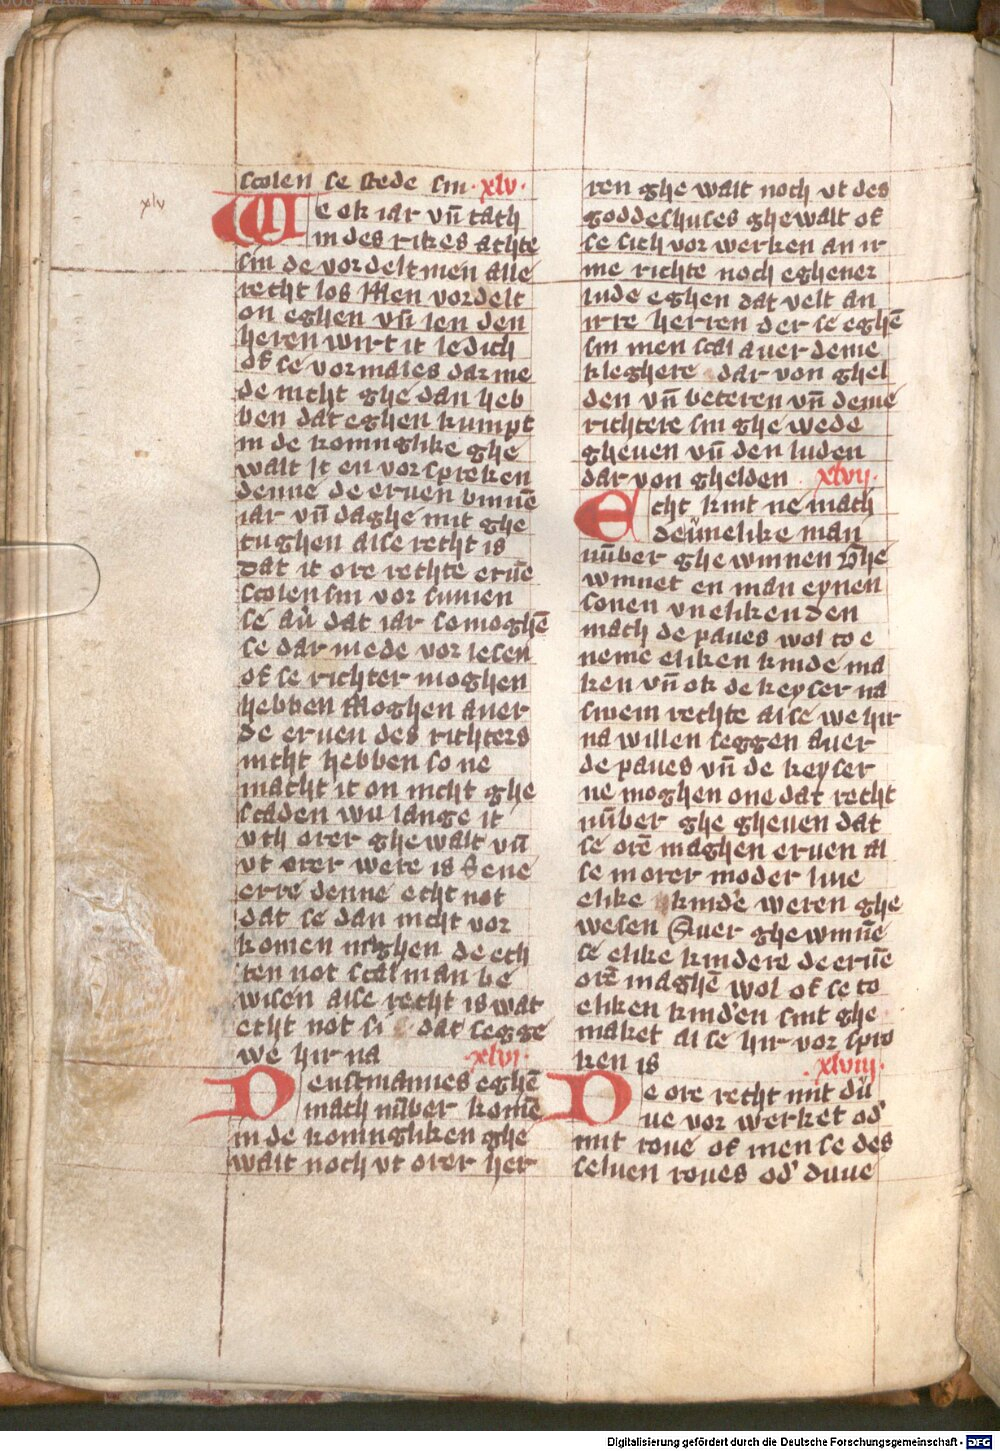 scolen se stede sin · xlv ·
We ok iar vn̄ tach
in des rikes achte
sin de vordelt men alle
recht los Men vordelt
on eghen vn̄ len den
heren wirt it ledich
Of se vormales dar me
de nicht ghe dan heb
ben dat eghen kumpt
in de koninglike ghe
walt It en vor spreken
denne de eruen binnē
iar vn̄ daghe mit ghe
tughen alse recht is
dat it ore rechte eruē
scolen sin vor sumen
se au̓ dat iar so moghē
se dar mede vor lesen
of se richter moghen
hebben Moghen auer
de eruen des richters
nicht hebben so ne
macht it on nicht ghe
scaden wu lange it
vth orer ghe walt vn̄
vt orer were is Seue
erre denne echt not
dat se dan nicht vor
komen moghen de ech
ten not scal man be
wisen alse recht is wat
echt not si dat segge
we hir na · xlvi ·
Denstmannes eghē
mach nūber komē
in de koningliken ghe
walt noch vt orer her
ren ghe walt noch vt des
goddeshuses ghe walt of
se sich vor werken an ir
me richte noch eghener
lude eghen dat velt an
irre herren der se eghē
sin men scal auer deme
kleghere dar von ghel
den vn̄ beteren vn̄ deme
richtere sin ghe wede
gheuen vn̄ den luden
dar von ghelden · xlvii ·
Echt kint ne mach
de v̈nelike man
nūber ghe winnen Ghe
winnet en man eynen
sonen vneliken den
mach de paues wol to e
neme eliken kinde ma
ken vn̄ ok de keyser na
sinem rechte alse we hir
na willen seggen auer
de paues vn̄ de keyser
ne moghen one dat recht
nūber ghe gheuen dat
se orē maghen eruen al
se in orer moder liue
elike kinde weren ghe
wesen Auer ghe winnē
se elike kindere de eruē
orē maghē wol of se to
eliken kind'en sint ghe
maket al se hir vor spro
ken is · xlviii ·
De ore recht mit dů
ue vor werket od'
mit roue of men se des
seluen roues od' duue
xlv
Digitalisierung gefördert durch die Deutsche Forschungsgemeinschaft - DFG